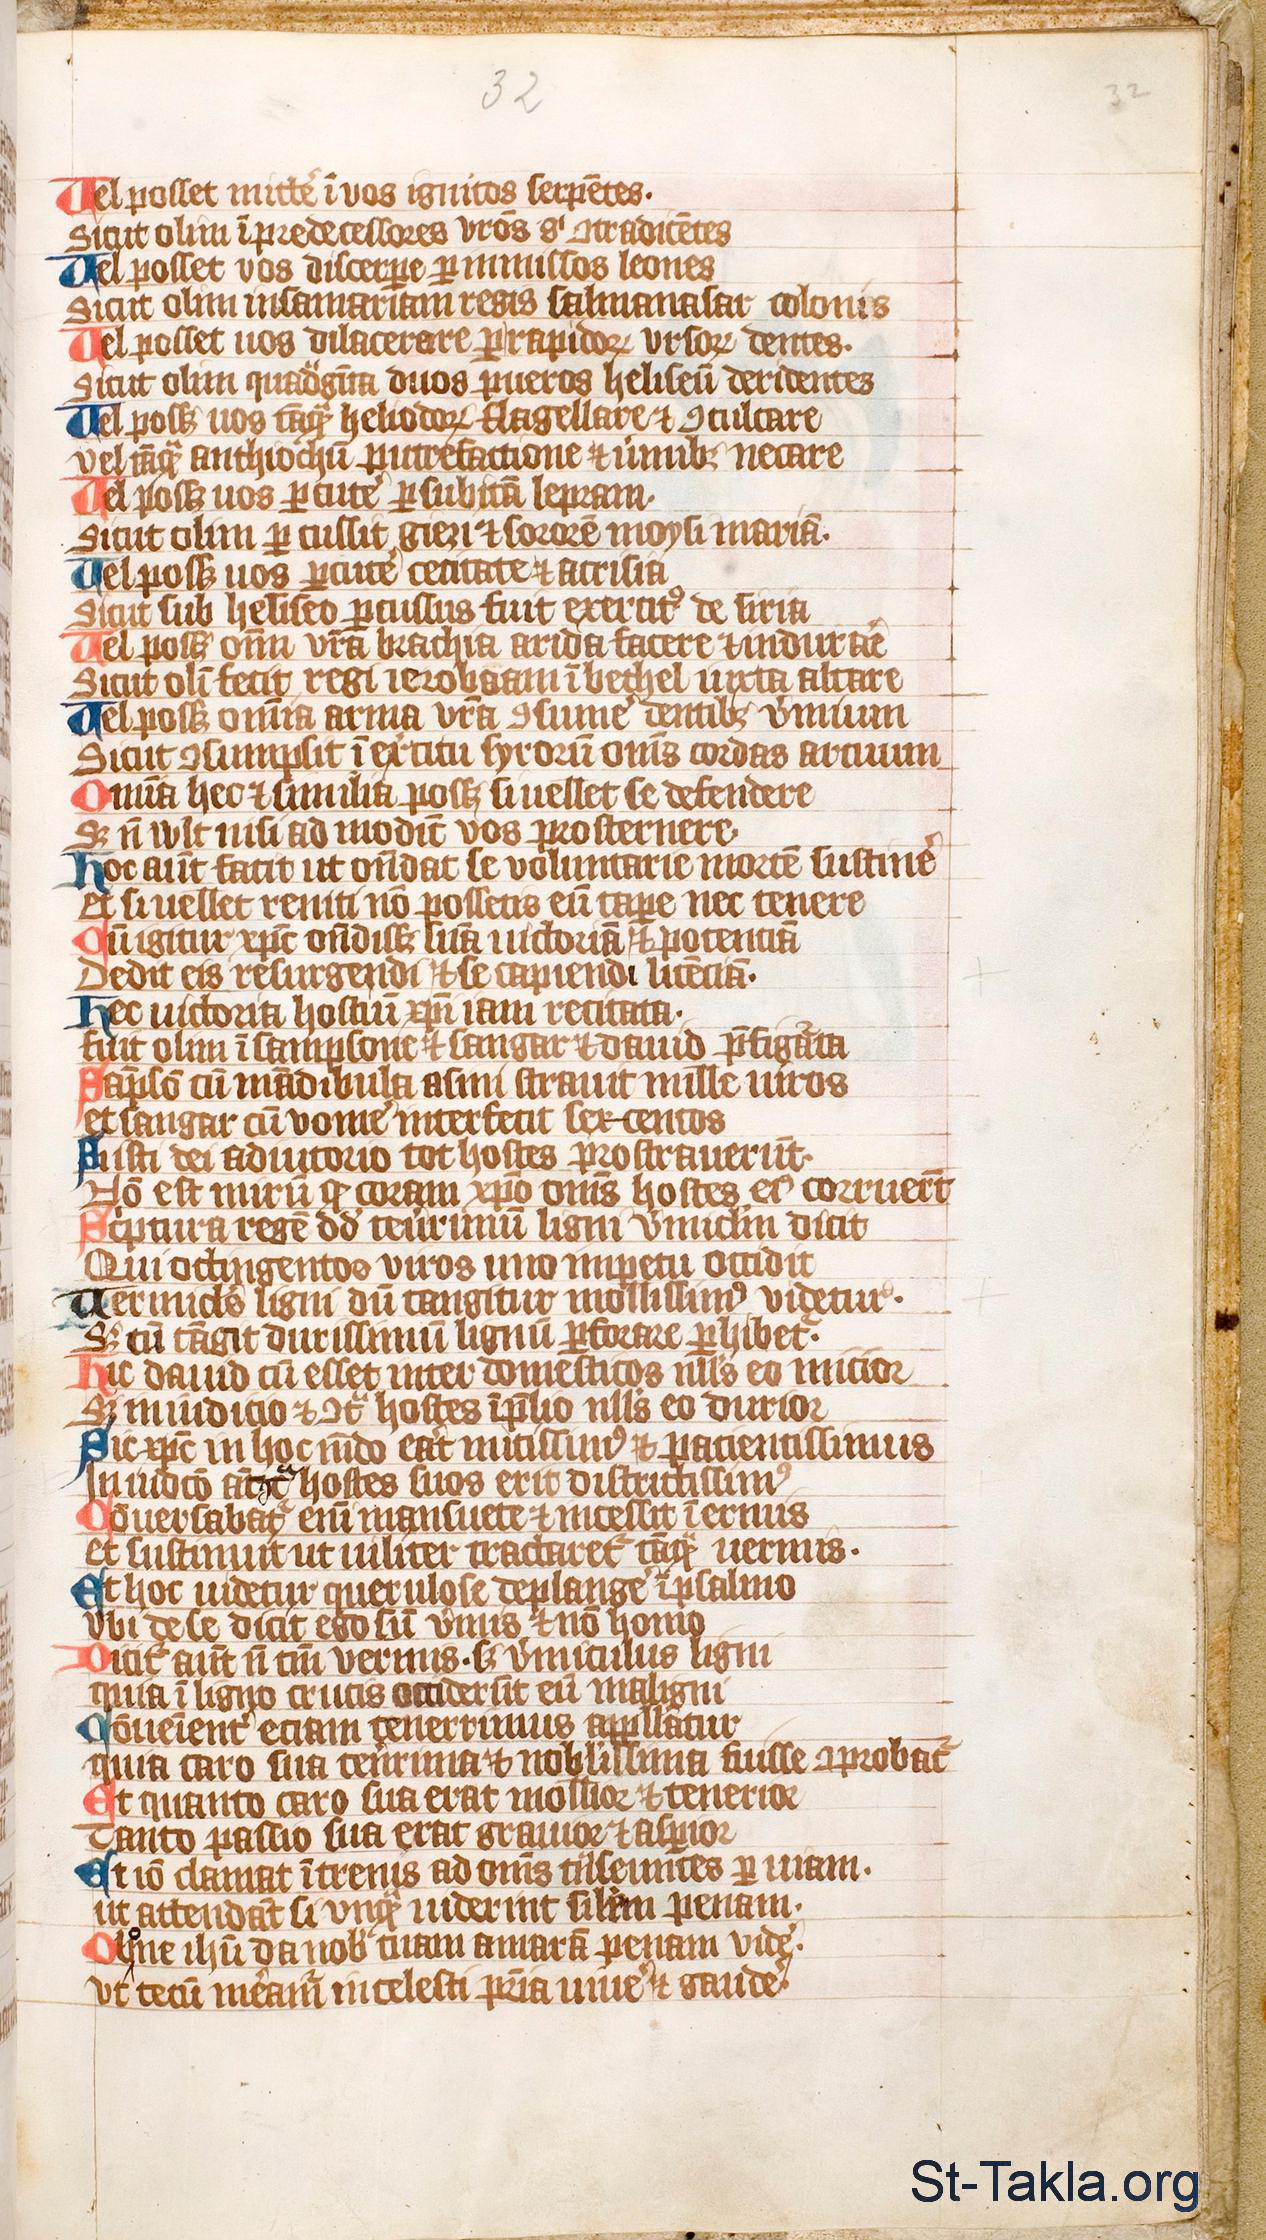 32
32
Vel posset mitte᷑ ī vos ignitos serpētes.
Sicut olim ī predecessores vrōs s ꝯtradicētes
Vel posset vos discerpe ꝑ inmissos leones
Sicut olim in samariam regis salmanasar colonis
Vel posset uos dilacerare ꝑ rapidoꝝ vrsoꝝ dentes.
Sicut olim quadͣgīta duos pueros heliseū deridentes
Vel possꝫ uos tāqͣ heliodoꝝ flagellare ⁊ ꝯculcare
vel tāqͣ anthiochū putrefactione ⁊ v̄mibꝫ necare
Vel possꝫ uos ꝑcute᷑ ꝑ subitā lepram.
Sicut olim ꝑcussit giezi ⁊ sororē moysi mariā.
Vel possꝫ uos ꝑcute᷑ cecitate ⁊ acrisia
Sicut sub heliseo ꝑcussus fuit exercitꝰ de siria
Vel possꝫ om̄i vr̄a brachia arida facere ⁊ indurāe
Sicut oli fecit regi ieroboam ī bethel iuxta altare
Vel possꝫ om̄ia arma vr̄a ꝯsume᷑ dentibꝫ v̄mium
Sicut ꝯsumpsit ī exͬcitu syrorū om̄s cordas arcuum
Om̄ia hec ⁊ similia possꝫ si uellet se defendere
Sꝫ n̄ wlt nisi ad modic̄ vos prosternere.
Hoc aūt facit ut on̄dat se voluntarie mortē sustine᷑
Et si uellet reniti nō possetis eū cape nec tenere
Cū igitur xp̄c on̄dissꝫ suā uictoriā ⁊ potenciā
Dedit eis resurgendi ⁊ se capiendi licēciā.
Hec uictoria hostiū xp̄i iam recitata.
fuit olim ī sampsone ⁊ sangar ⁊ dauid p̄figͣata
Sāpsō cū mādibula asini strauit mille uiros
et sangar cū vome᷑ interfecit sex centos
Si isti dei adiutorio tot hostes prostrauerūt.
Nō est mirū ꝙ coram xp̄o om̄s hostes eiꝰ corruer̄t
Scͥptura regē dd̄ ten̄rimū ligni v̄miclm̄ dicit
Qui octingentos viros uno impetu occidit
Vermicls̄ ligni dū tangitur mollissimꝰ videtur.
Sꝫ cū tāgit durissimū lignū ꝑforare ꝑhibet᷑.
Hic dauid cū esset inter domesticos nlls̄ eo micior
Sꝫ in iudicio ⁊ ꝯtͣ hostes ī p̄lio nlls̄ eo durior
Sic xp̄c in hoc mūdo eāt mitissimꝰ ⁊ pacientissimus
In iudicō āt ꝯtͣ hostes suos erit districtissimꝰ
Cōuersabat᷑ enī mansuete ⁊ incessit ī ermis
et sustinuit ut uiliter tractaret᷑ tāqͣ uermis.
Et hoc uidetur querulose deplange᷑ ī psalmo
vbi de se dicit ego sū v̄mis ⁊ nō homo
Dicit᷑ aūt n̄ tm̄ vermis. sꝫ v̄miculus ligni
quia ī ligno crucis occider̄t eū maligni
Cōueīent᷑ eciam tenerrimus appllatur
quia caro sua ten̄rima ⁊ nobilissima fuisse ꝯprobat᷑
Et quanto caro sua erat mollior ⁊ tenerior
Tanto passio sua erat grauior ⁊ aspior
Et iō clamat ī trenis ad om̄s tn̄seuntes ꝑ uiam.
ut attendāt si vnqͣ uiderint silēm penam.
O bone ihū da nob᷑ tuam amarā penam vide᷑.
vt tecū meͬam᷑ in celesti pr̄ia uiue᷑ ⁊ gaude᷑
St-Takla.org